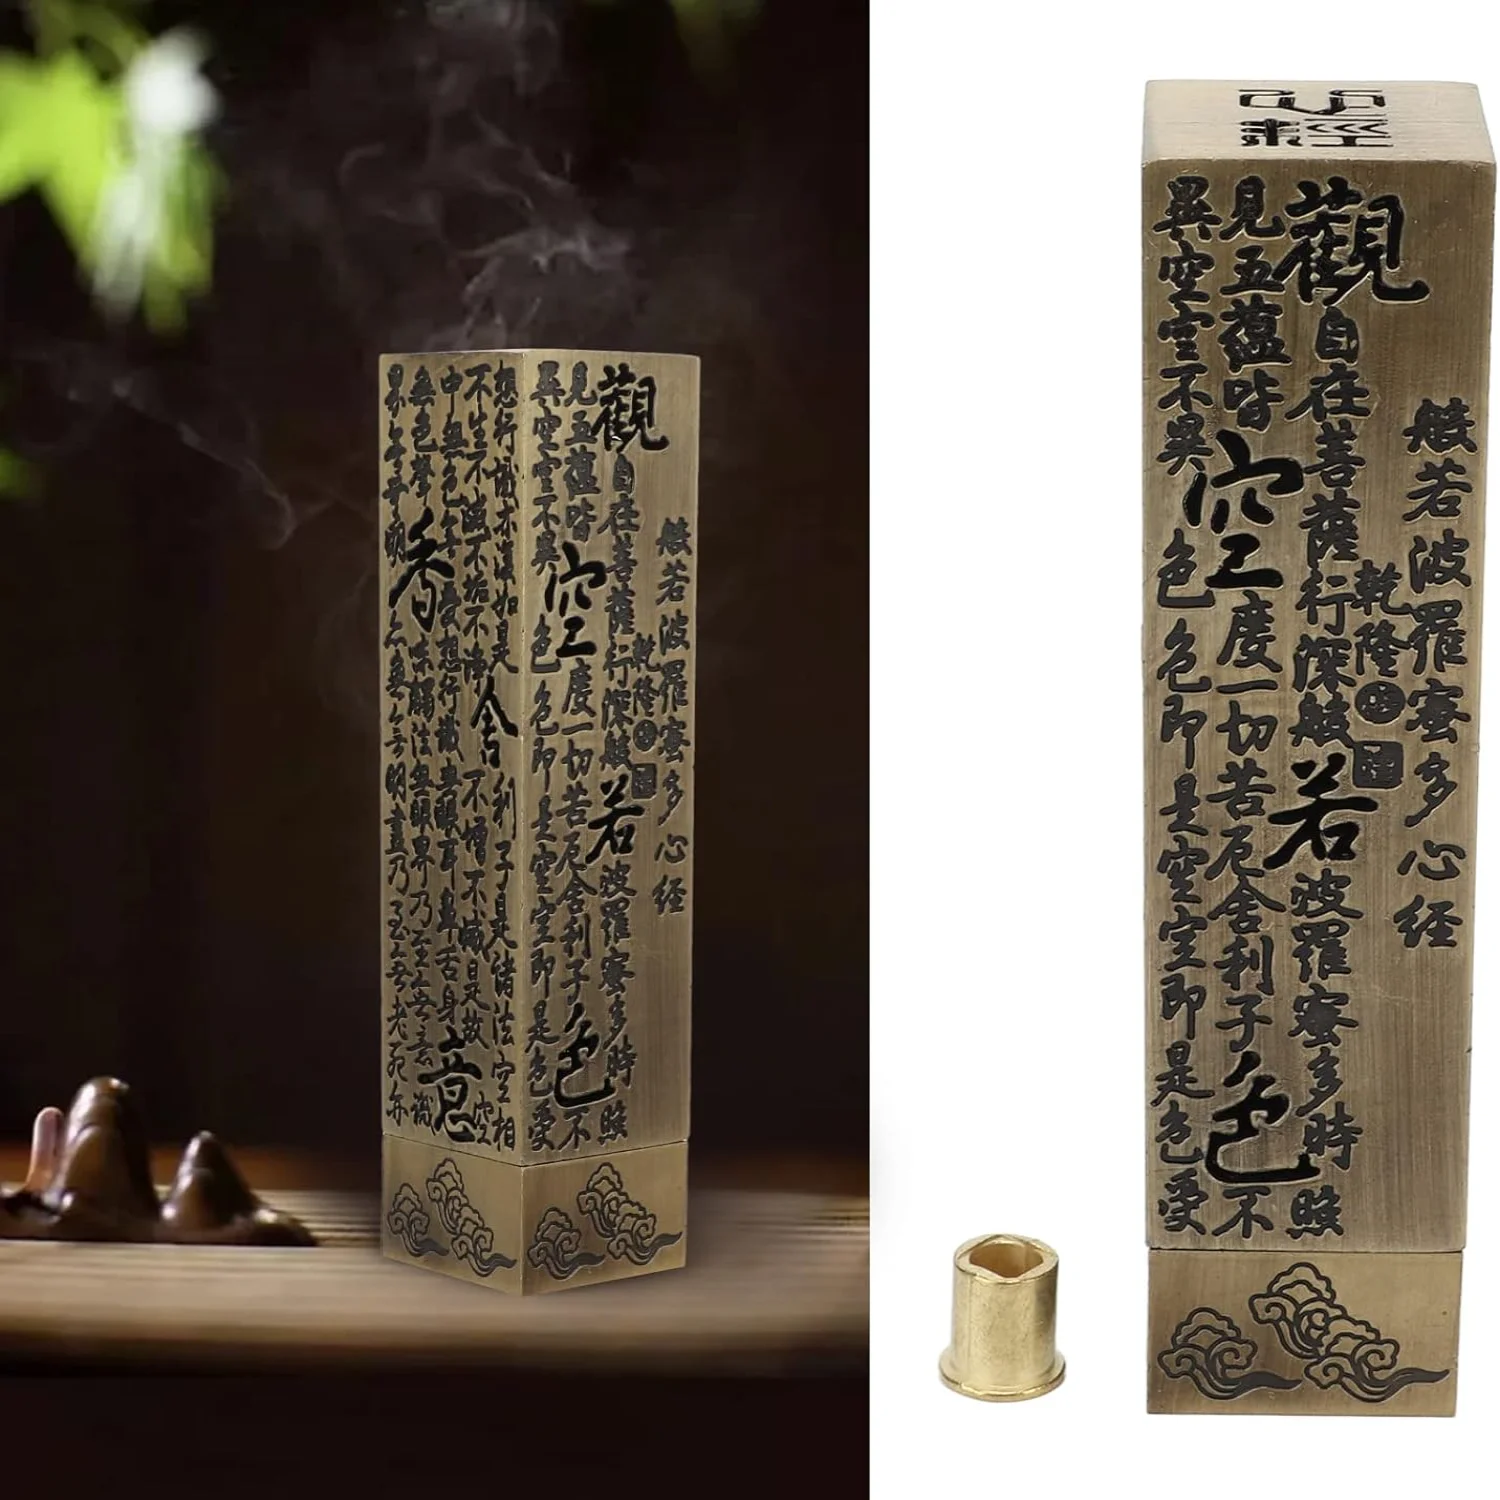 般若波羅蜜多心経
乾隆
觀自在菩薩行深般若波羅蜜多時照
見五蘊皆空度一切苦厄舍利子色不
異空空不異色色即是空空即是色受
想行識亦復如是舍利子是諸法空相
不生不滅不垢不淨不增不減是故空
中無色無受想行識無眼耳鼻舌身意
無色聲香味觸法無眼界乃至無意識
界無無明亦無無明盡乃至無老死亦
心經
般若波羅蜜多心経
乾隆
觀自在菩薩行深般若波羅蜜多時照
見五蘊皆空度一切苦厄舍利子色不
異空空不異色色即是空空即是色受